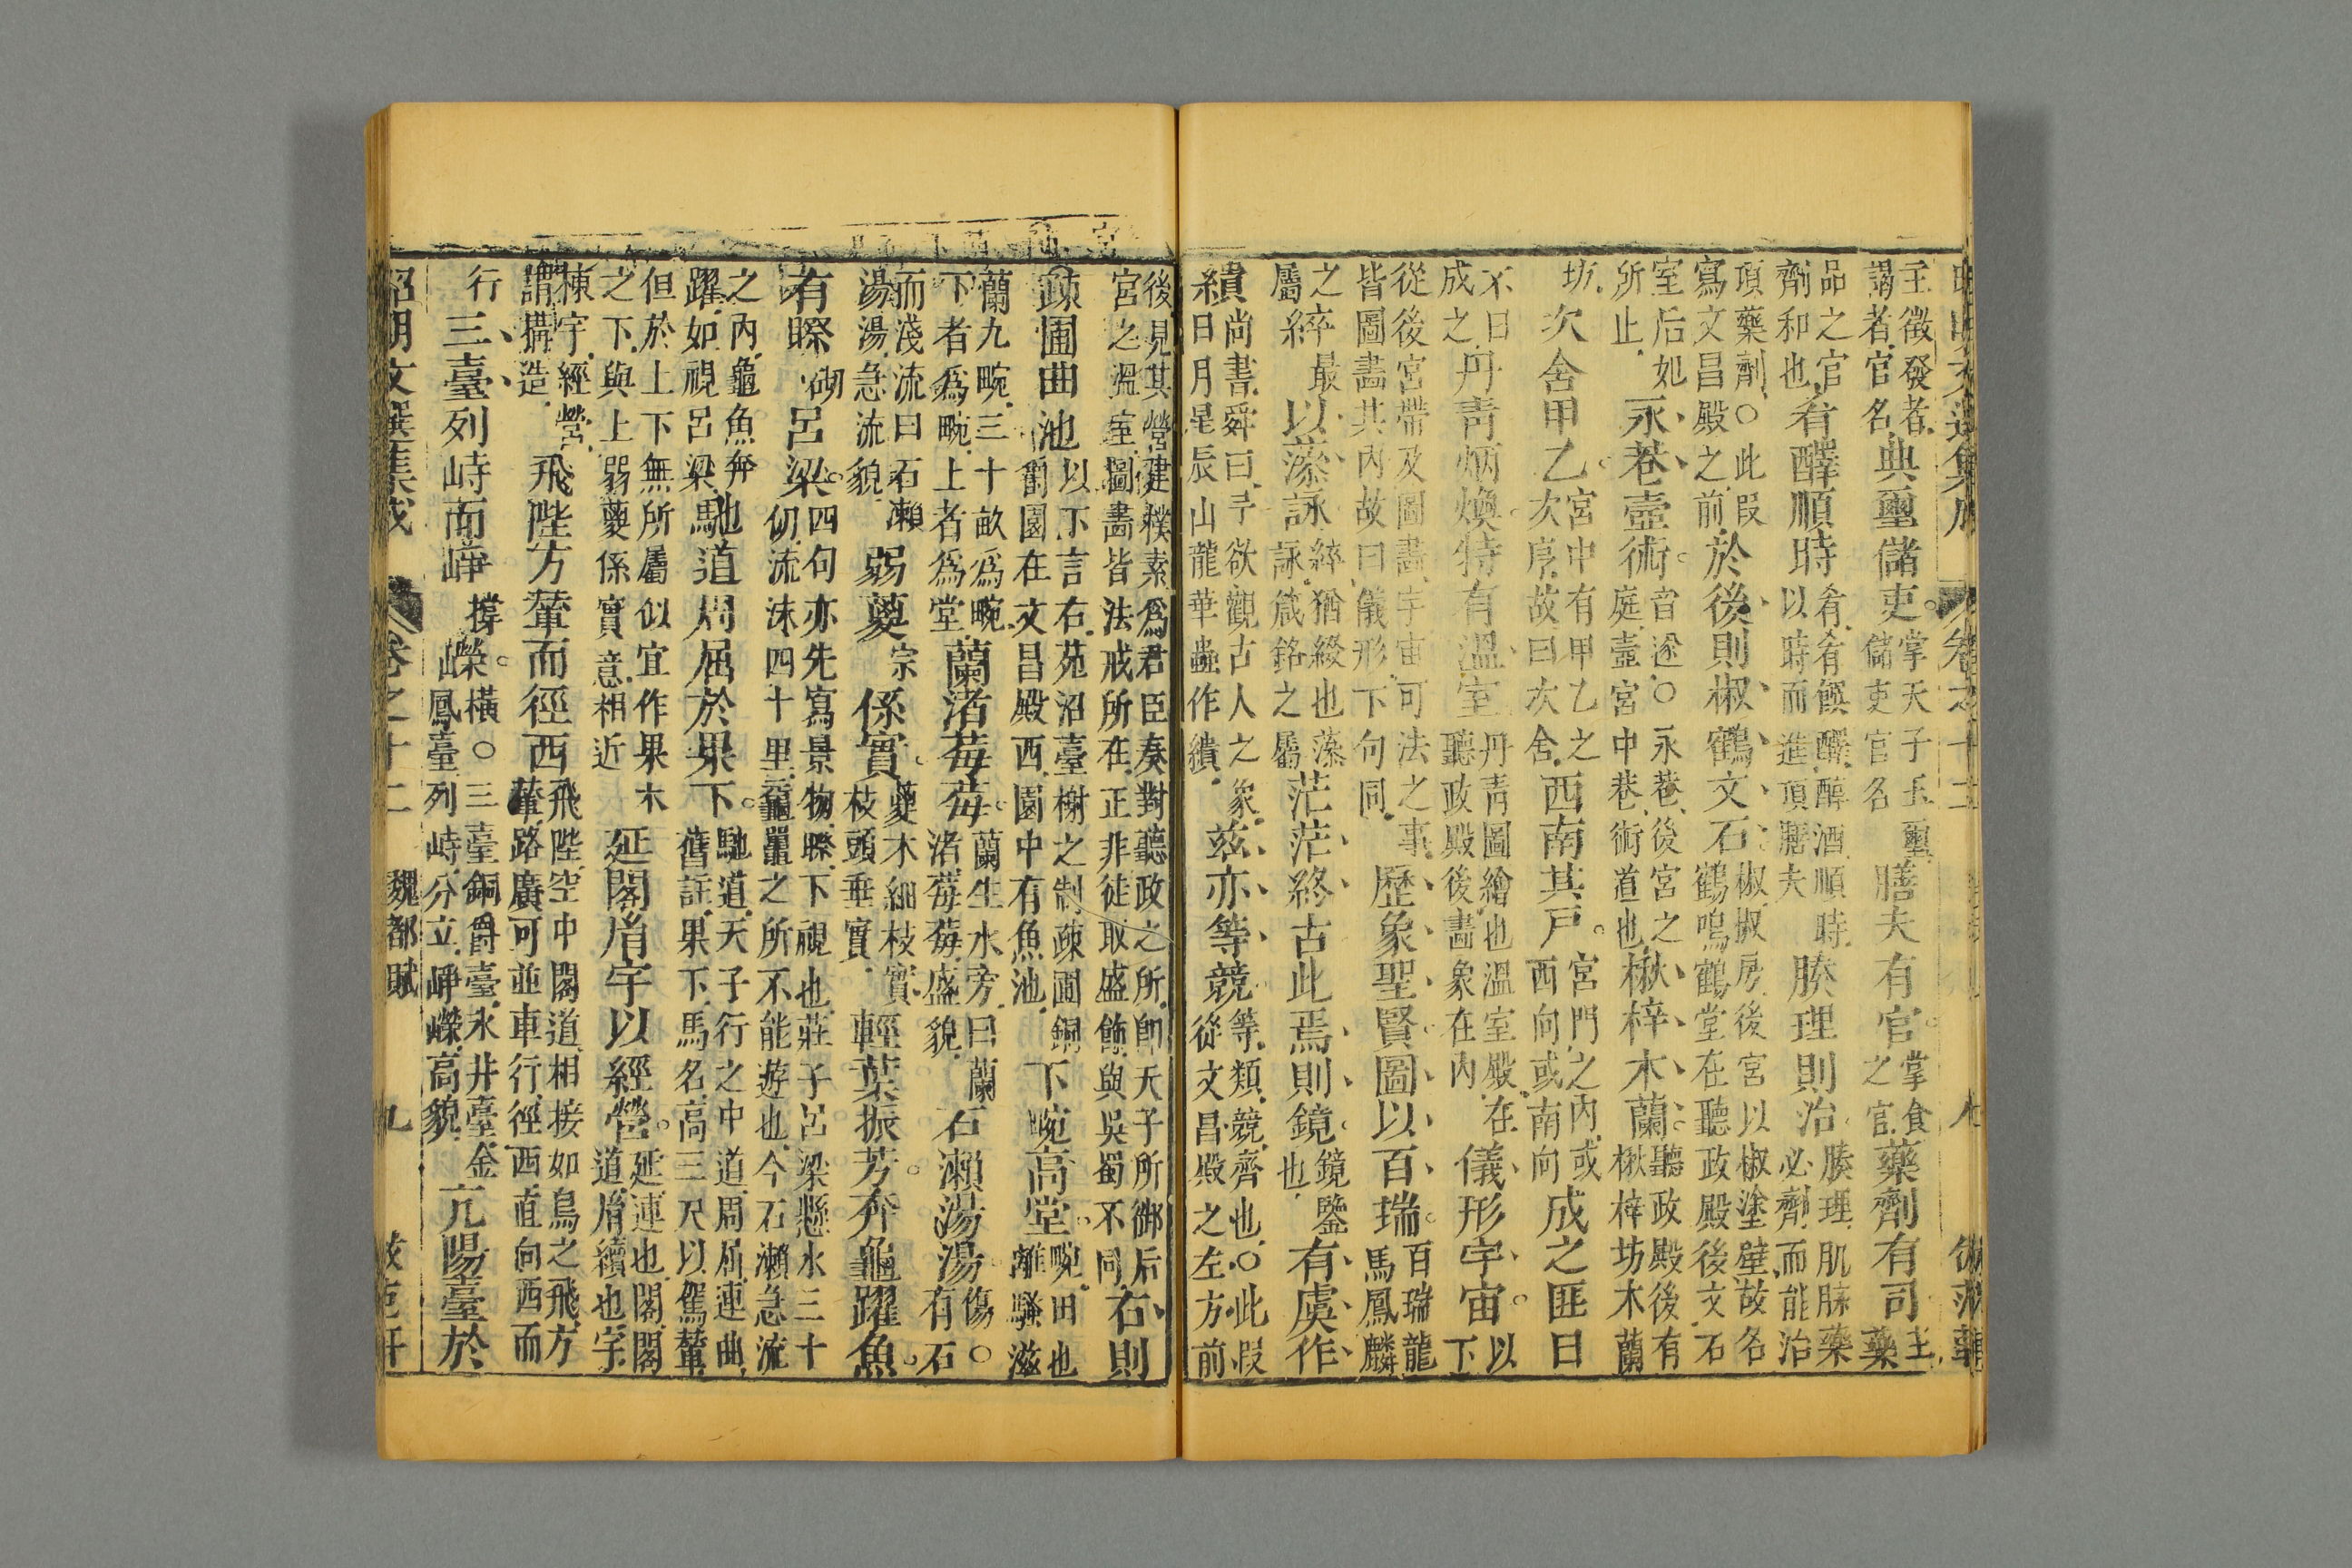 卷之十二 八
主徵發者謁者官名典璽儲吏掌天子玉璽儲吏官名膳夫有官掌食之官藥劑有司主藥
品之官劑和也肴醳順時肴肴饌醳醇酒順時以時而進頂膳夫腠理則治腠理肌脉藥必劑而能治
項藥劑○此叚寫文昌殿之前於後則椒鶴文石椒椒房後宮以椒塗壁故名鶴鳴鶴堂在聽政殿後文石
室后妃所止永巷壼術音遂○永巷後宮之庭壼宮中巷術道也楸梓木蘭聽政殿後有楸梓坊木蘭
坊次舍甲乙宮中有甲乙之次序故曰次舍西南其戸宮門之內或西向或南向成之匪日
不日成之丹青炳煥特有溫室丹青圖繪也溫室殿在聽政殿後畫象在內儀形宇宙以下
從後宮帶及圖畫宇宙可法之事皆圖畫其內故曰儀形下句同歷象聖賢圖以百瑞百瑞龍馬鳳麟
之屬綷最以藻詠綷猶綴也藻詠箴銘之屬茫茫終古此焉則鏡鏡鑒也有虞作
繢尚書舜曰予欲觀古人之象日月星辰山龍華蟲作繢玆亦等競等類競齊也○此叚從文昌殿之左方前
後見其營建樸素爲君臣奏對聽政之所卽天子所御后宮之溫室圖畫皆法戒所在正非徒取盛飾與吳蜀不同右則
疎圃曲池以下言右苑沼臺榭之制疎圃銅爵園在文昌殿西園中有魚池下畹高堂畹田也離騷滋
蘭九畹三十畝爲畹下者爲畹上者爲堂蘭渚莓莓蘭生水旁曰蘭渚莓莓盛貌石瀨湯湯傷○有石
而淺流曰石瀨湯湯急流貌弱葼宗係實葼木細枝實枝頭垂實輕葉振芳奔龜躍魚
有䁽砌呂梁四句亦先寫景物䁽下視也莊子呂梁懸水三十仞流沫四十里黿鼉之所不能遊也今石瀨急流
之內龜魚奔躍如視呂梁馳道周屈於果下馳道天子行之中道周屈連曲舊註果下馬名高三尺以駕輦
但於上下無所屬似宜作果木之下與上弱葼係實意相近延閣胤宇以經營延連也閣閣道胤續也宇
棟宇經營謂搆造飛陛方輦而徑西飛陛空中閣道相接如鳥之飛方輦路廣可並車行徑西直向西而
行三臺列峙而崢撐嶸橫○三臺銅爵臺氷井臺金鳳臺列峙分立崢嶸高貌亢陽臺於
昭明文選集成 卷之十二 魏都賦 九